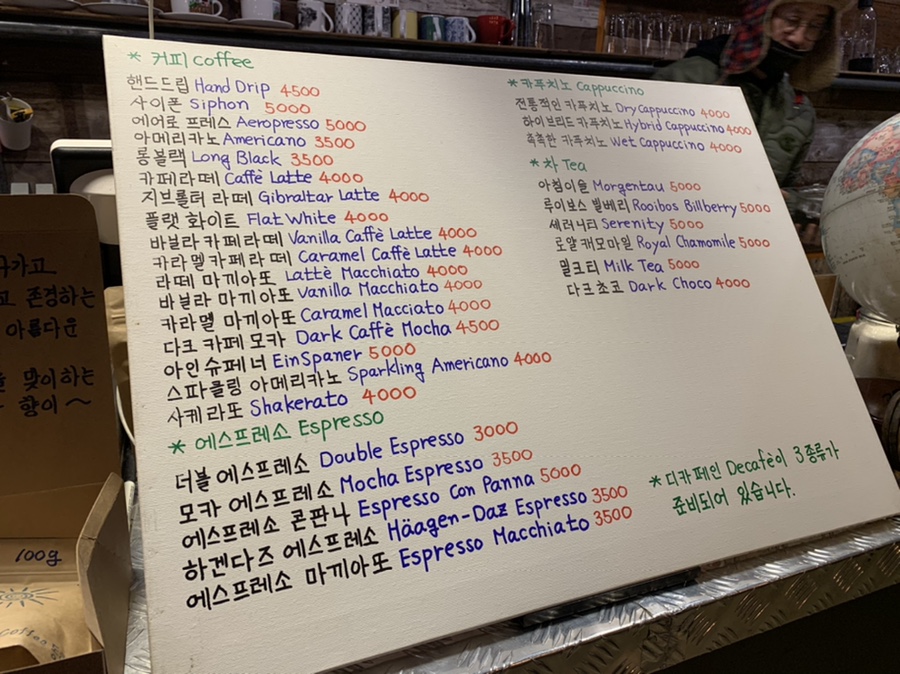 * 커피 coffee
핸드드립 Hand Drip 4500
사이폰 Siphon 5000
에어로 프레스 Aeropresso 5000
아메리카노 Americano 3500
롱블랙 Long Black 3500
카페라떼 Caffè Latte 4000
지브롤터 라떼 Gibraltar Latte 4000
플랫 화이트 Flat White 4000
바닐라 카페라떼 Vanilla Caffè Latte 4000
카라멜 카페라떼 Caramel Caffè Latte 4000
라떼 마끼아또 Lattè Macchiato 4000
바닐라 마끼아또 Vanilla Macchiato 4000
카라멜 마끼아또 Caramel Macciato 4000
다크 카페 모카 Dark Caffè Mocha 4500
아인슈페너 EinSpaner 5000
스파클링 아메리카노 Sparkling Americano 4000
사케라또 Shakerato 4000
* 에스프레소 Espresso
더블 에스프레소 Double Espresso 3000
모카 에스프레소 Mocha Espresso 3500
에스프레소 콘판나 Espresso Con Panna 5000
하겐다즈 에스프레소 Häagen-Daz Espresso 3500
에스프레소 마끼아또 Espresso Macchiato 3500
* 카푸치노 Cappuccino
전통적인 카푸치노 Dry Cappuccino 4000
하이브리드 카푸치노 Hybrid Cappuccino 4000
촉촉한 카푸치노 Wet Cappuccino 4000
* 차 Tea
아침이슬 Morgentau 5000
루이보스 빌베리 Rooibos Billberry 5000
세러니티 Serenity 5000
로얄 캐모마일 Royal Chamomile 5000
밀크티 Milk Tea 5000
다크초코 Dark Choco 4000
* 디카페인 Decafè이 3종류가
준비되어 있습니다.
존경하는
아름다운
맞이하는
향이~
100g
Coffee